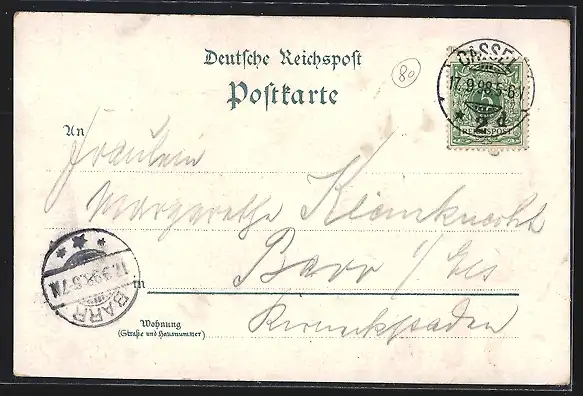 Deutsche Reichspost
Postkarte
80
CASSEL
17.9.98.5-6V
* 2 d.
REICHSPOST
An
Fräulein
Margarethe Kleinknecht
Barr i/Els
in
BARR
Wohnung
(Straße und Hausnummer)